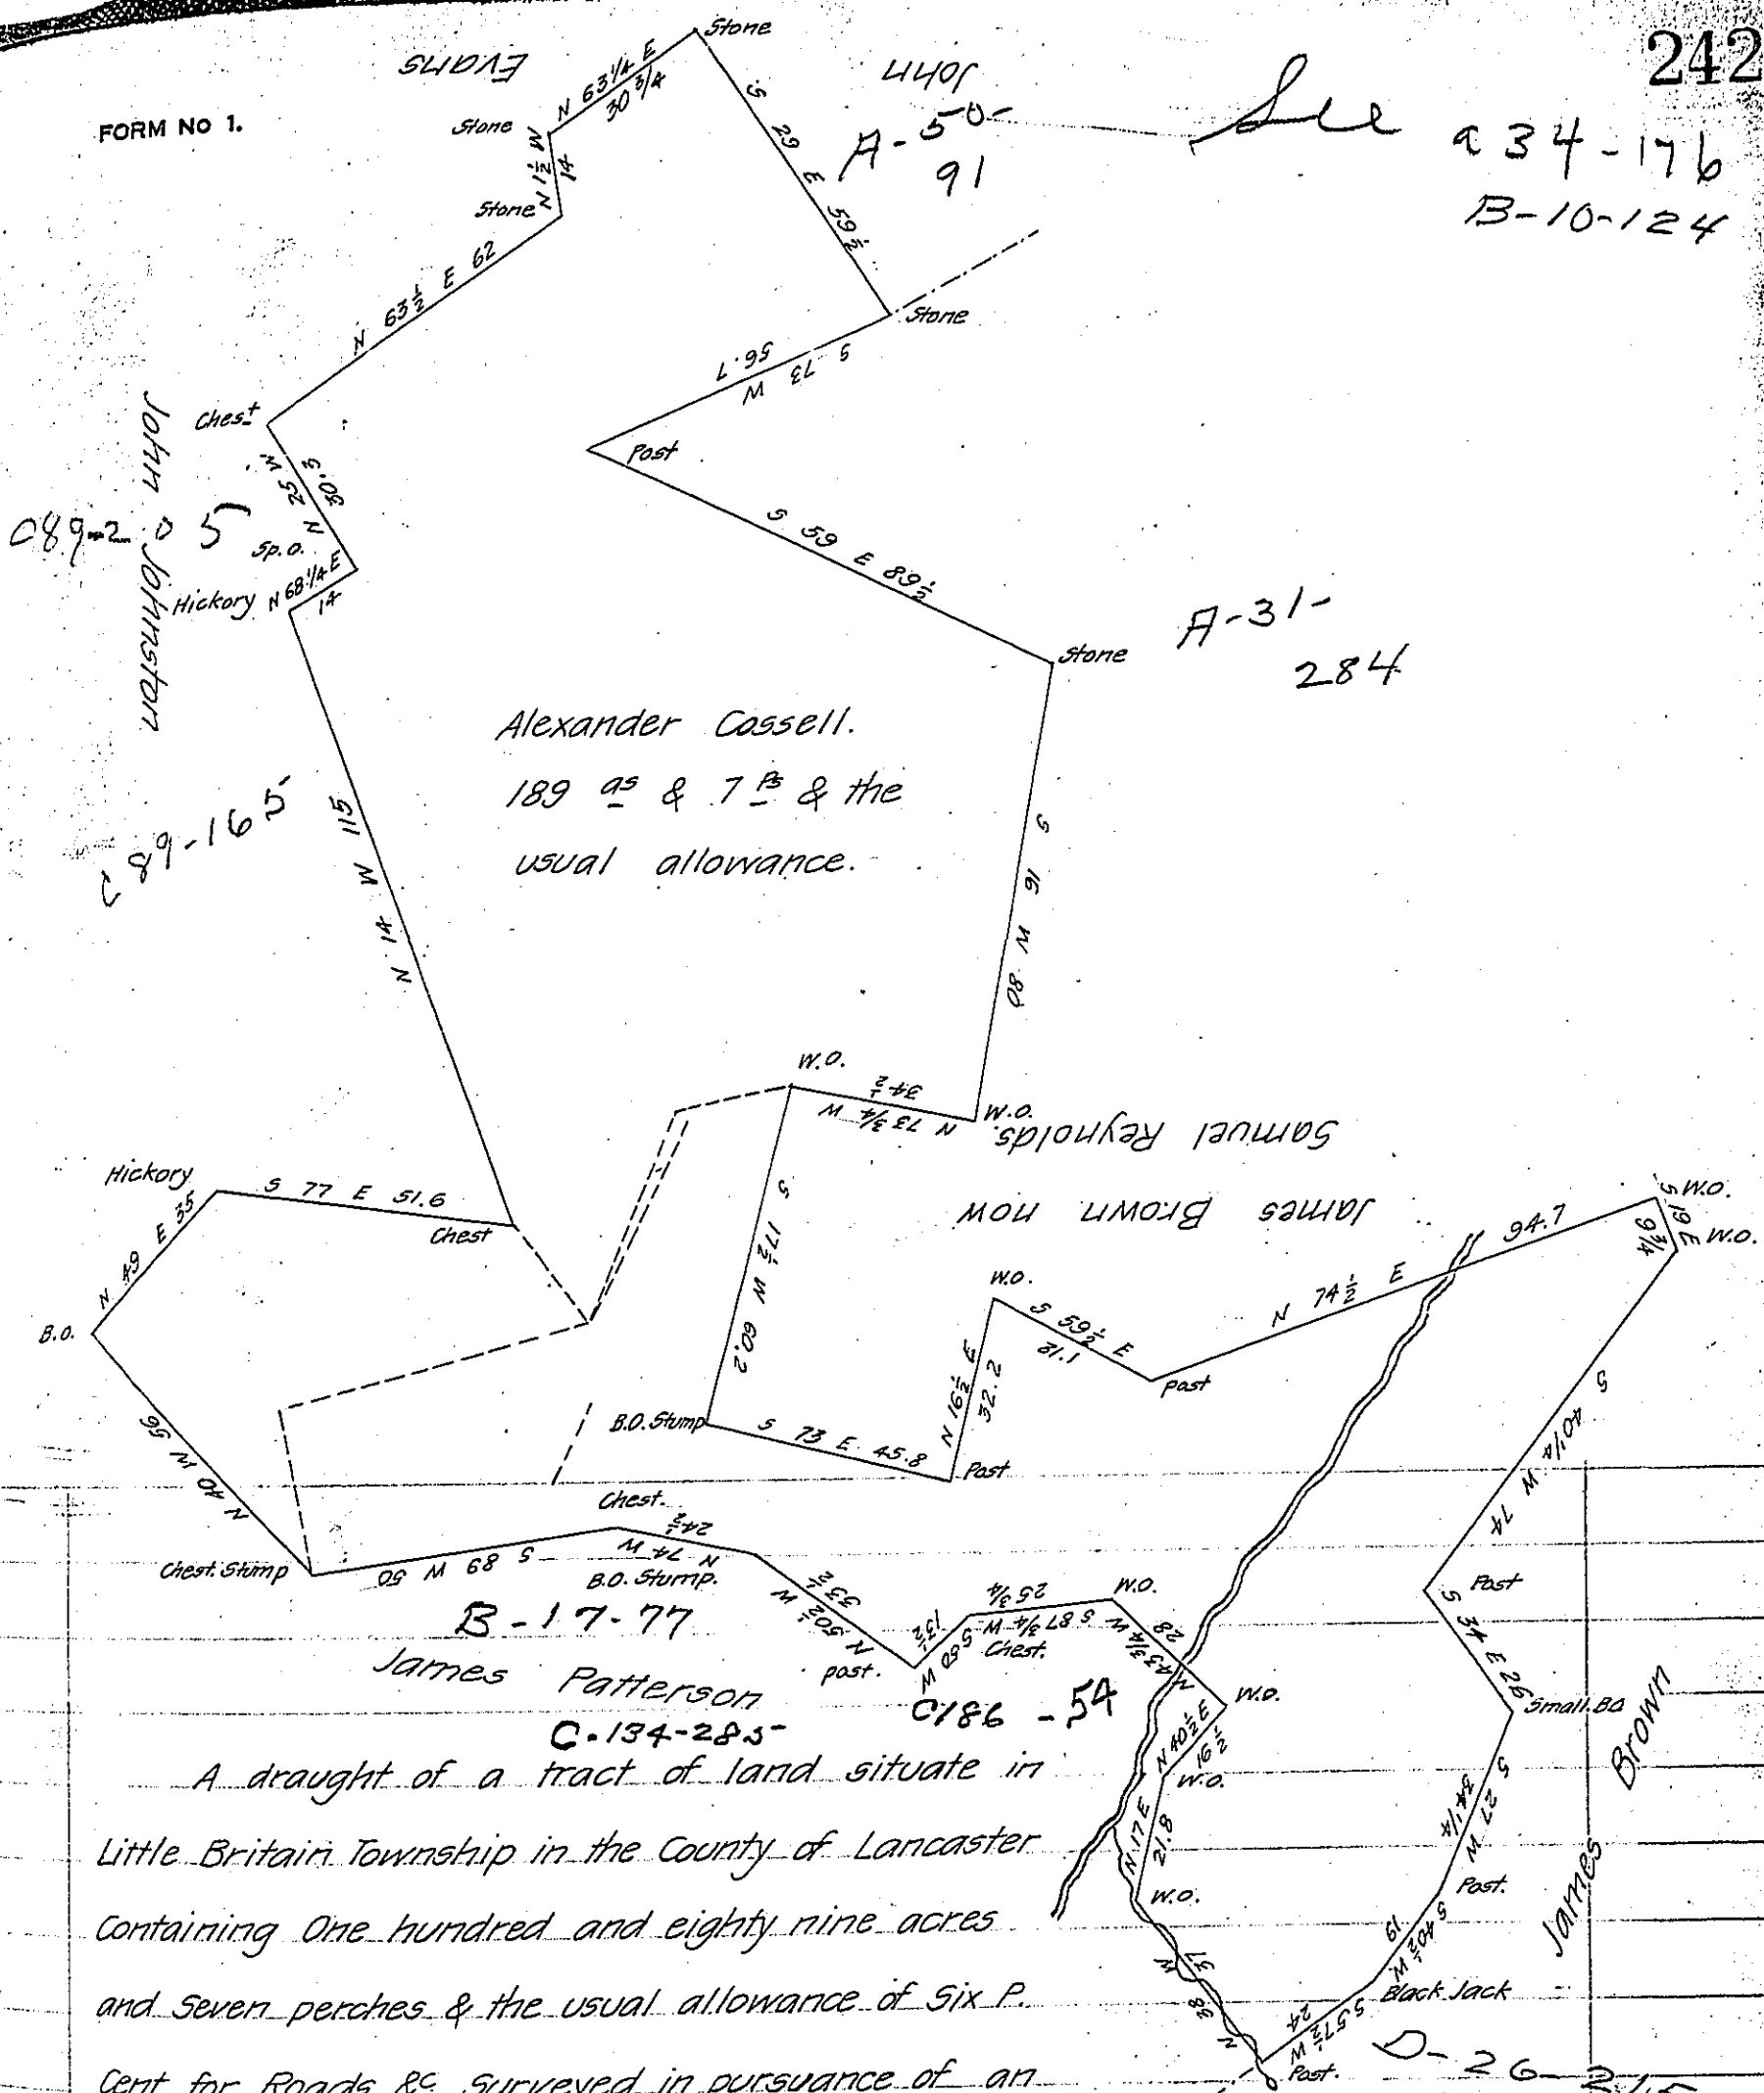 242
FORM NO 1.
Evans
John
A-50-
91
See a 34-176
B-10-124
Stone
N 63 1/4 E
30 3/4
Stone
N 1 1/2 W
14
Stone
S 29 E 59 1/2
Stone
N 63 1/2 E 62
S 73 W
56.7
Chest
Post
N 25 W
30.3
John Johnston
C89-205
Sp.o.
Hickory
N 68 1/4 E
14
S 59 E 89 1/2
Stone
A-31-
284
Alexander Cossell.
189 as & 7 Ps & the
usual allowance.
C 89-165
N 14 W 115
S 16 W 80
W.O.
N 73 3/4 W
34 1/2
W.O.
Samuel Reynolds.
James Brown now
Hickory
S 77 E 51.6
Chest
N 49 E 35
B.O.
S 17 1/2 W 60.2
W.O.
S 59 1/2 E
Post
N 74 1/2 E 94.7
W.O.
S 19 E
9 3/4
W.O.
N 40 W 56
B.O. Stump
S 73 E 45.8
Post
N 16 1/2 E
32.2
S 40 1/4 W 74
Chest. Stump
S 89 W 50
Chest.
N 74 W
24 1/2
B.O. Stump.
N 50 1/2 W
33 1/2
post.
S 50 W
13 1/2
S 87 3/4 W
25 3/4
Chest.
W.O.
N 43 3/4 W
28
W.O.
Post
S 34 E 26
Small B.O.
B-17-77
James Patterson
C-134-285
C186-54
N 40 1/2 E
16 1/2
W.O.
N 17 E
21.8
W.O.
S 27 W
34 1/4
Post.
James Brown
S 40 1/2 W
19
Black Jack
N 38 W
37
S 57 1/2 W
24
Post.
D-26-215
A draught of a tract of land situate in
Little Britain Township in the County of Lancaster
Containing One hundred and eighty nine acres
and Seven perches & the usual allowance of Six P.
Cent for Roads &c Surveyed in pursuance of an